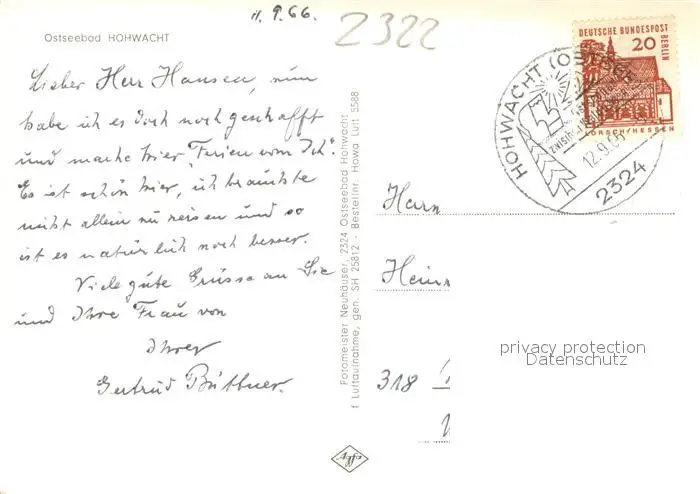 11.9.66.
2322
Ostseebad HOHWACHT
Lieber Herr Hansen, nun
habe ich es doch noch geschafft
und mache hier "Ferien vom Ich".
Es ist schön hier, ich brauchte
nicht allein zu reisen und so
ist es natürlich noch besser.
Viele gute Grüsse an Sie
und Ihre Frau von
Ihrer
Gertrud Büttner.
Fotomeister Neuhäuser, 2324 Ostseebad Hohwacht
f Luftaufnahme, gen. SH 25812 - Bestellnr. Howa Luft 5588
Agfa
DEUTSCHE BUNDESPOST
BERLIN
20
LORSCH/HESSEN
HOHWACHT (OSTSEE)
12.9.66
2324
Herrn
Hein
318
privacy protection
Datenschutz